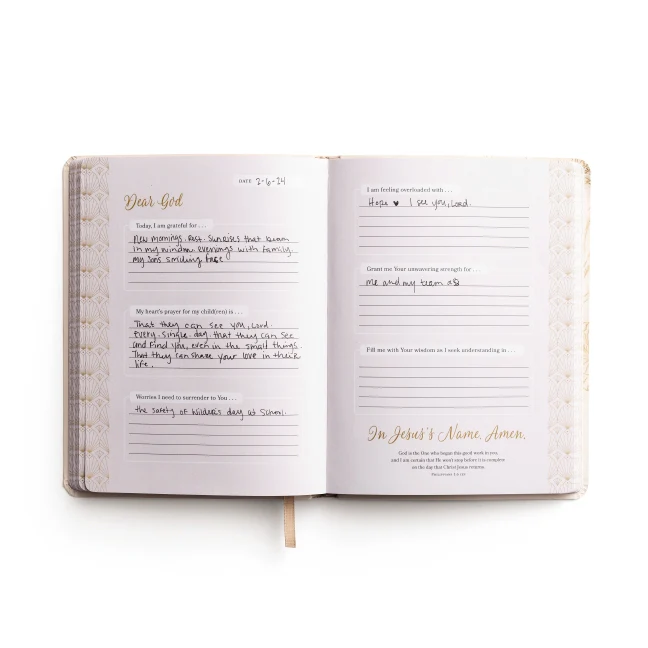 DATE 2-6-24
Dear God
Today, I am grateful for . . .
New mornings. Rest. Sunrises that beam
in my window. evenings with family.
my sons smiling face
My heart's prayer for my child(ren) is . . .
That they can see you, Lord.
every. single. day. that they can see
and find you, even in the small things.
That they can share your love in their
life.
Worries I need to surrender to You . . .
the safety of Wilder's day at school.
I am feeling overloaded with . . .
Hope ♥ I see you, Lord.
Grant me Your unwavering strength for . . .
me and my team as
Fill me with Your wisdom as I seek understanding in . . .
In Jesus's Name, Amen.
God is the One who began this good work in you,
and I am certain that He won't stop before it is complete
on the day that Christ Jesus returns.
PHILIPPIANS 1:6